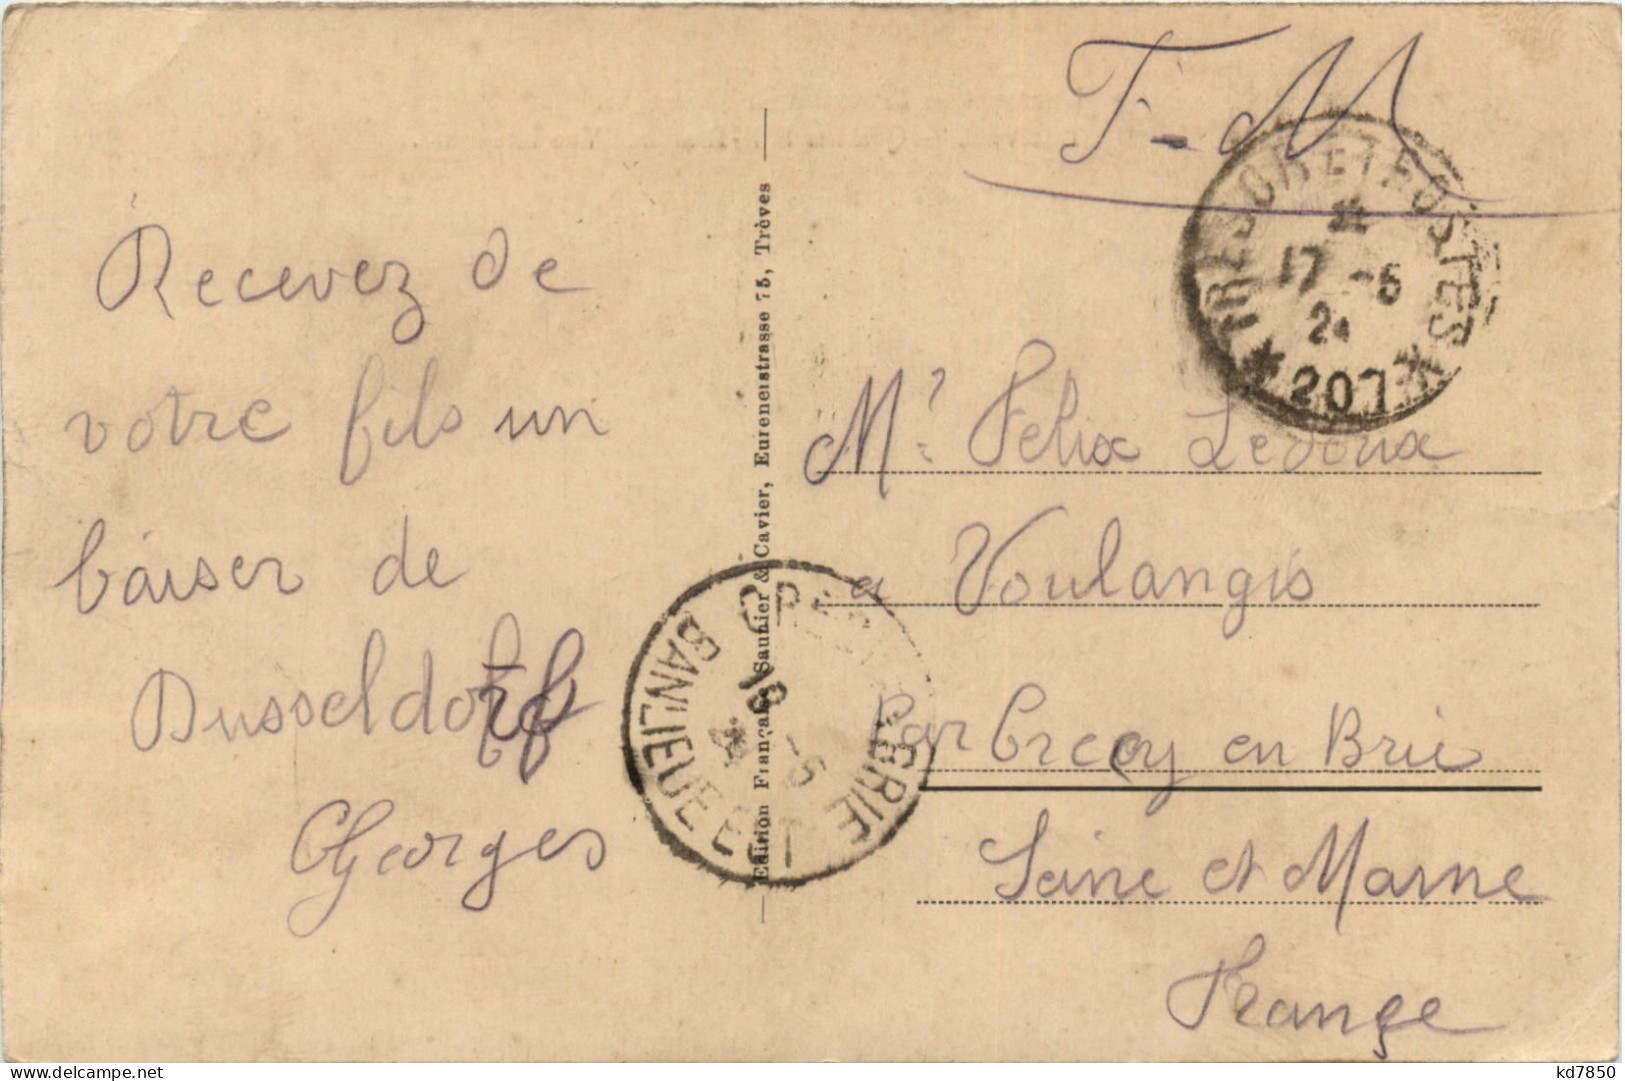 F-M
TRESOR ET POSTES
17 -5
* 207 *
Recevez de
votre fils un
baiser de
Dusseldorf
Georges
Edition Française Saunier & Cavier, Eurenerstrasse 75, Trèves
Mr Felix Ledoux
a Voulangis
Par Crecy en Brie
Seine et Marne
France
BRIE
BANLIEUE EST
18 -5
kd7850